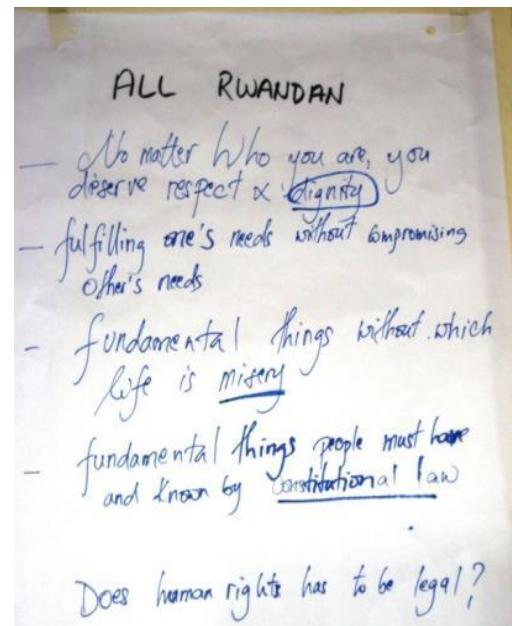 ALL RWANDAN
— No matter Who you are, you
deserve respect & dignity
— fulfilling one's needs without compromising
Other's needs
- fundamental things without which
life is misery
- fundamental things people must have
and known by constitutional law
Does human rights has to be legal?